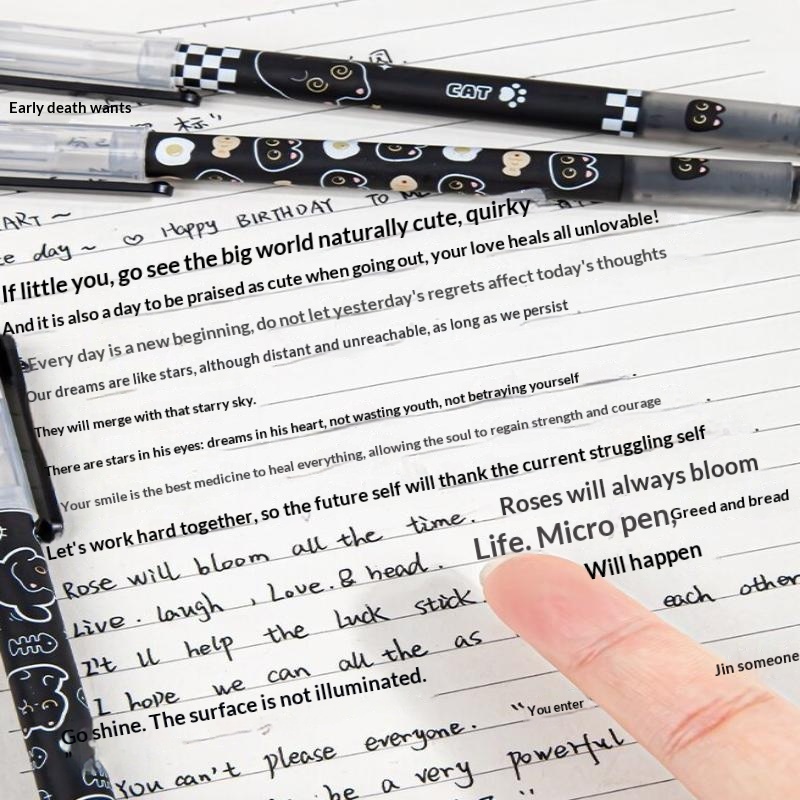 CAT
Early death wants
标"
ART ~
e day ~ ♡ Happy BIRTHDAY TO
If little you, go see the big world naturally cute, quirky
And it is also a day to be praised as cute when going out, your love heals all unlovable!
Every day is a new beginning, do not let yesterday's regrets affect today's thoughts
Our dreams are like stars, although distant and unreachable, as long as we persist
They will merge with that starry sky.
There are stars in his eyes: dreams in his heart, not wasting youth, not betraying yourself
Your smile is the best medicine to heal everything, allowing the soul to regain strength and courage
Let's work hard together, so the future self will thank the current struggling self
Rose will bloom all the time. Roses will always bloom
Live. laugh, Love. & head. Life. Micro pen; Greed and bread
It ll help the luck stick Will happen each other
I hope we can all the as Jin someone
Go shine. The surface is not illuminated.
You can't please everyone. "You enter
be a very powerful